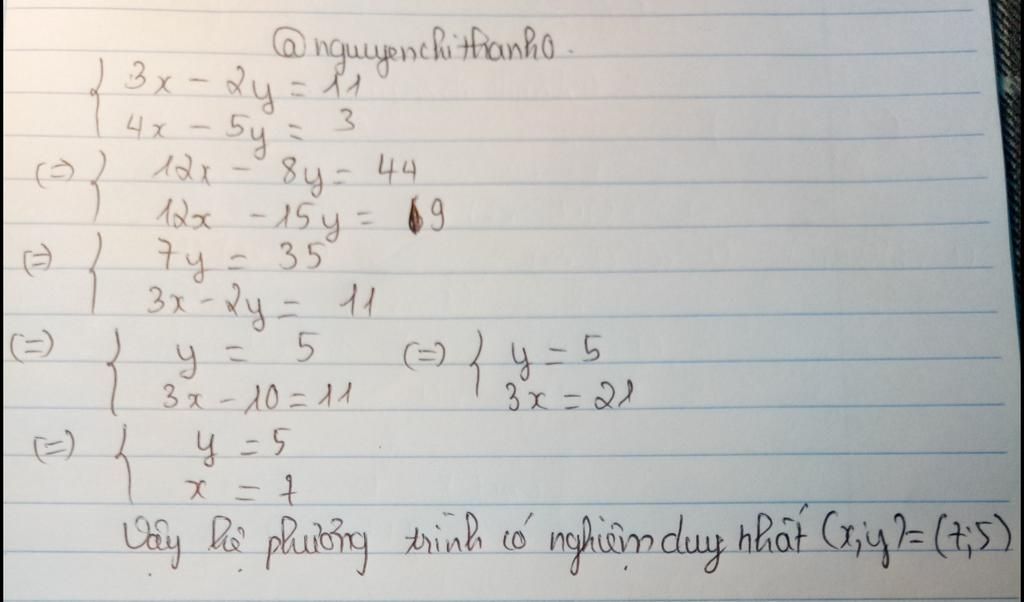 @nguyenchithanh0.
{ 3x - 2y = 11
4x - 5y = 3
(=) { 12x - 8y = 44
12x - 15y = 9
(=) { 7y = 35
3x - 2y = 11
(=) { y = 5 (=) { y = 5
3x - 10 = 11 3x = 21
(=) { y = 5
x = 7
Vậy hệ phương trình có nghiệm duy nhất (x;y)=(7;5)